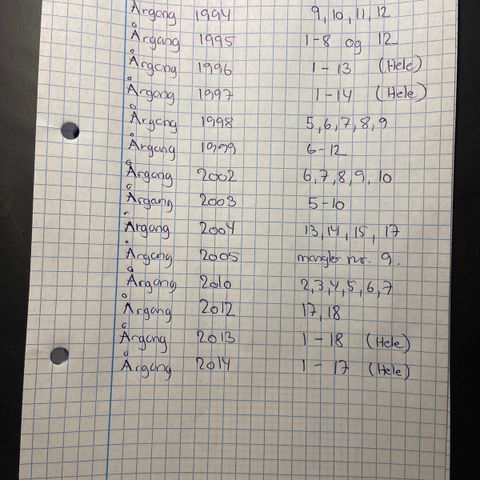 Årgang 1994 9, 10, 11, 12
Årgang 1995 1-8 og 12
Årgang 1996 1-13 (Hele)
Årgang 1997 1-14 (Hele)
Årgang 1998 5,6,7,8,9
Årgang 1999 6-12
Årgang 2002 6,7,8,9,10
Årgang 2003 5-10
Årgang 2004 13,14,15,17
Årgang 2005 mangler nr. 9.
Årgang 2010 2,3,4,5,6,7
Årgang 2012 17,18
Årgang 2013 1-18 (Hele)
Årgang 2014 1-17 (Hele)